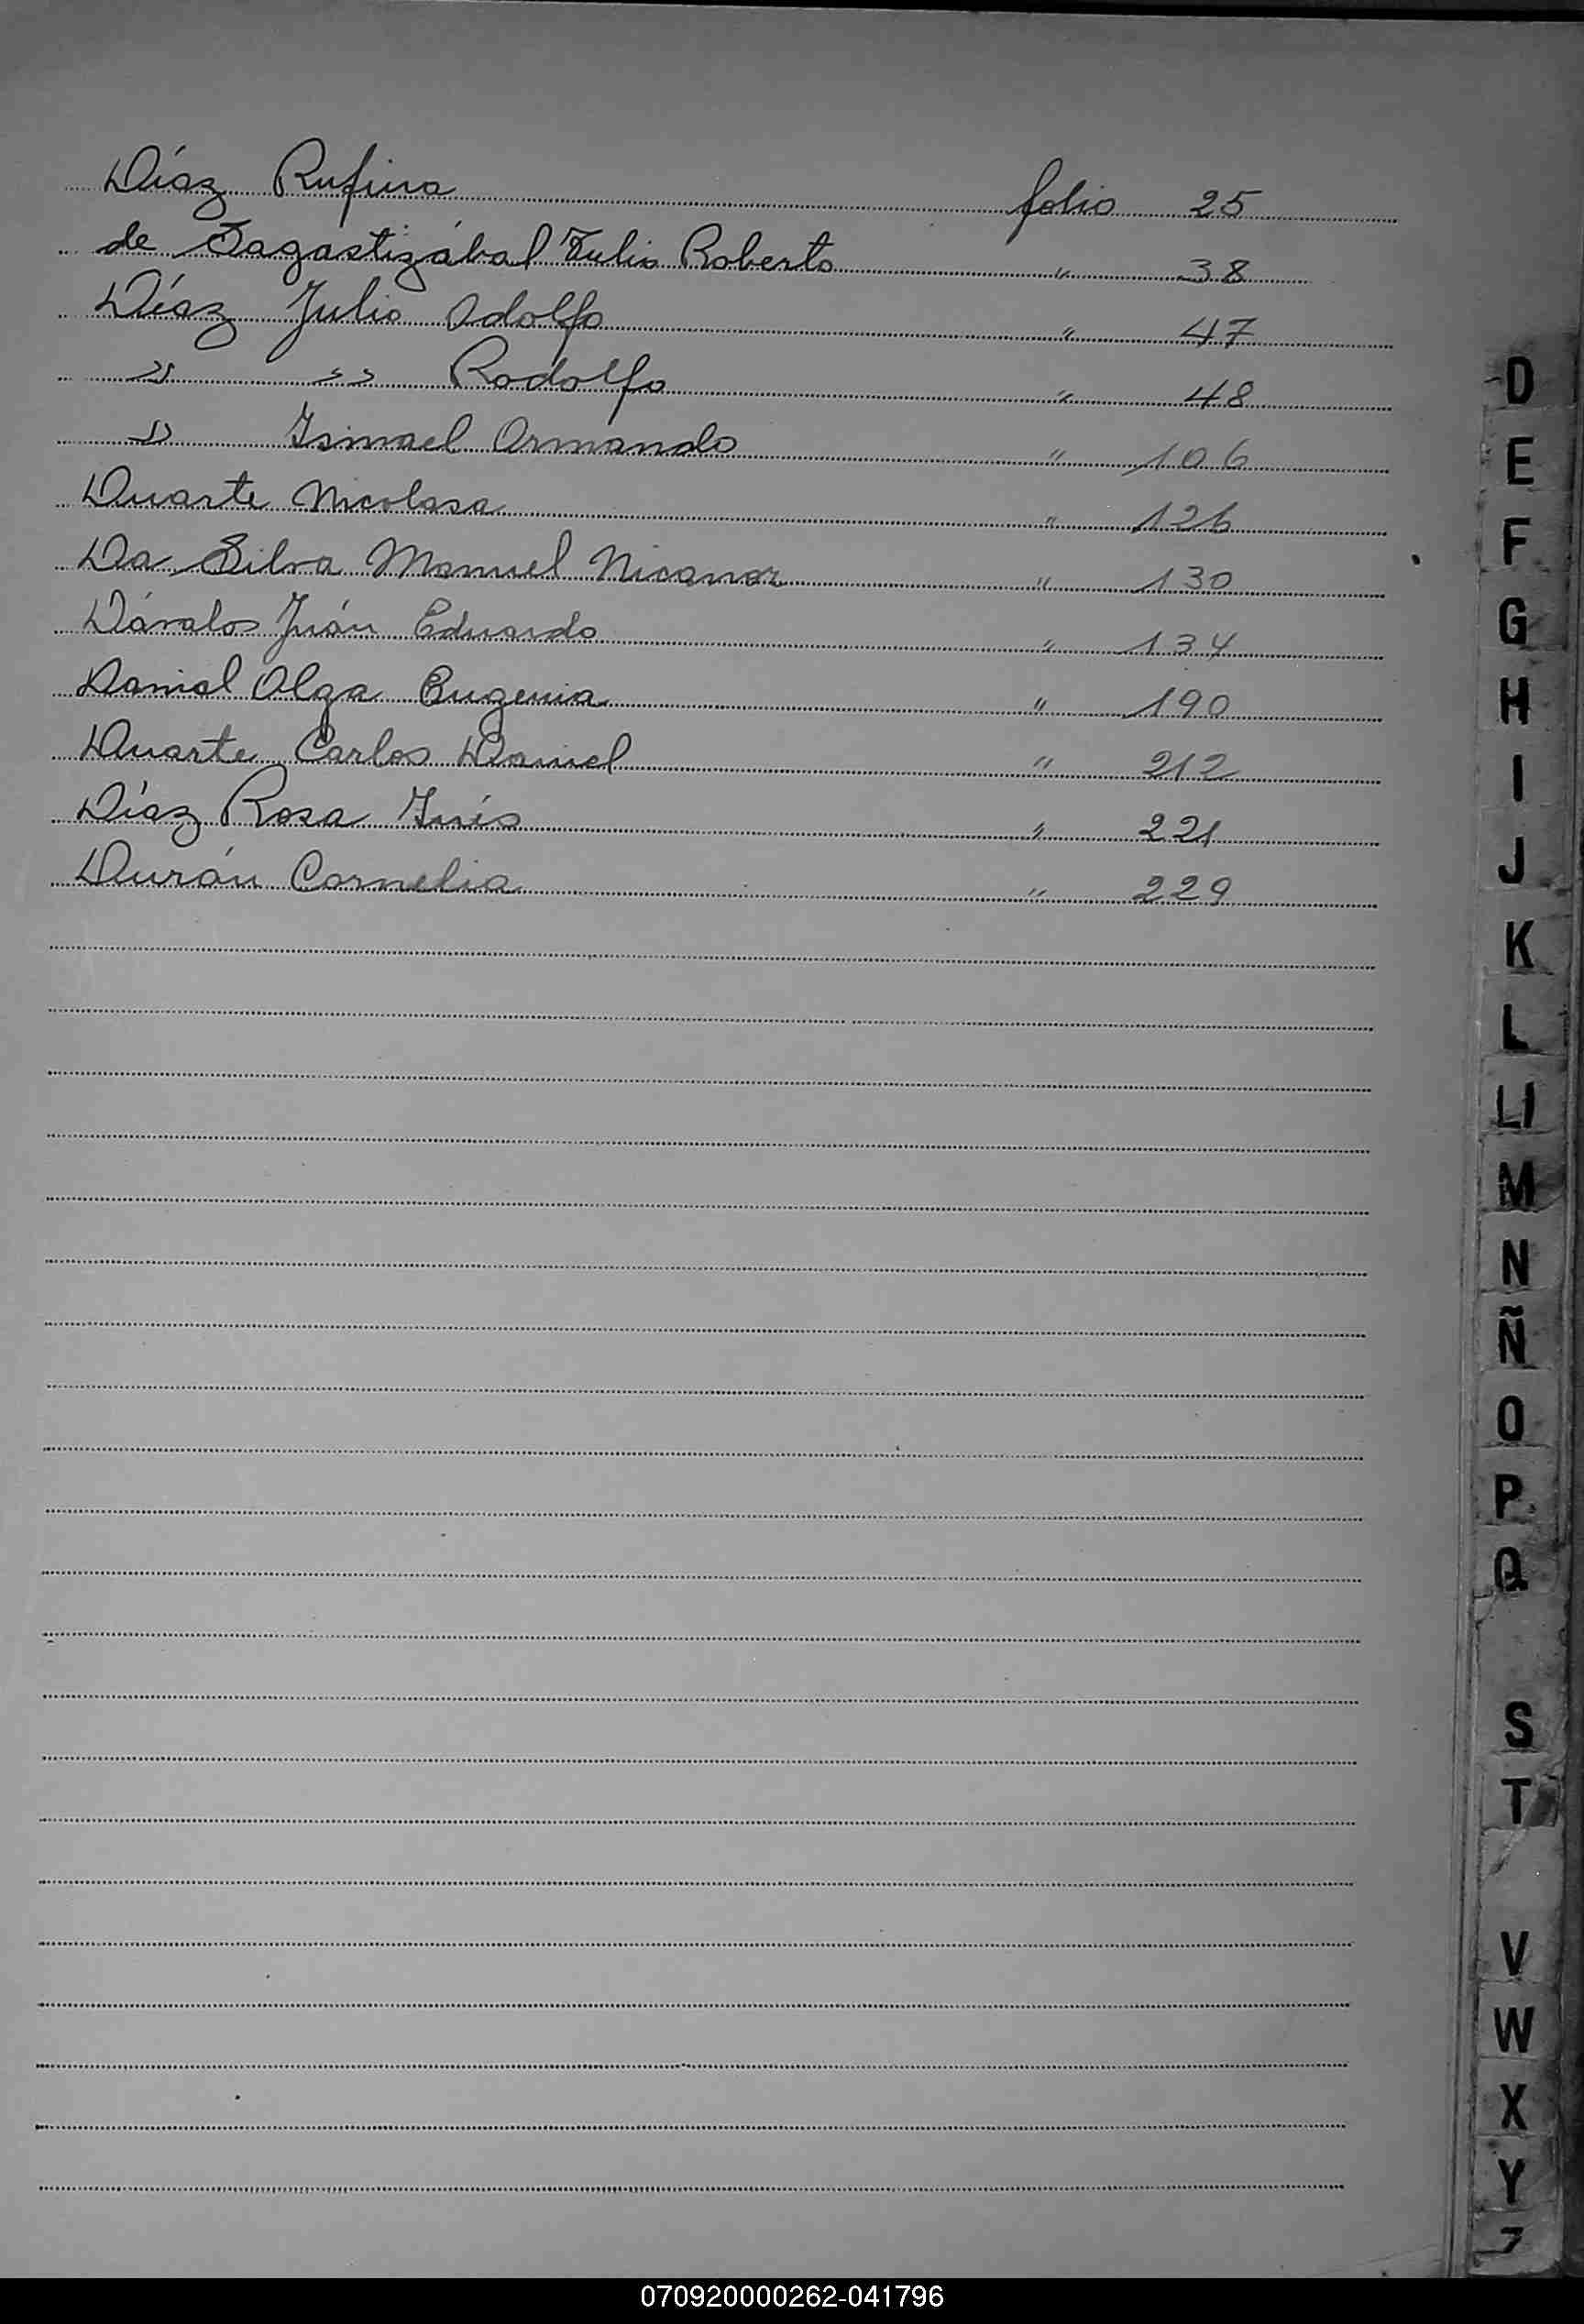 Díaz Rufina folio 25
de Sagastizábal Tulio Roberto " 38
Díaz Julio Adolfo " 47
" " Rodolfo " 48
" Ismael Armando " 106
Duarte Nicolasa " 126
Da Silva Manuel Nicanor " 130
Dávalos Juán Eduardo " 134
Danial Olga Eugenia " 190
Duarte Carlos Daniel " 212
Díaz Rosa Inés " 221
Durán Cornelia " 229
D
E
F
G
H
I
J
K
L
Ll
M
N
Ñ
O
P
Q
S
T
V
W
X
Y
Z
070920000262-041796